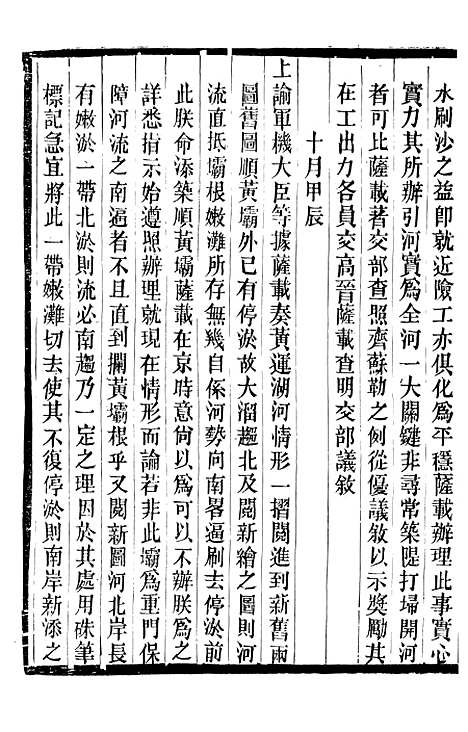 水刷沙之益卽就近險工亦俱化爲平穩薩載辦理此事實心
實力其所辦引河實爲全河一大關鍵非尋常築隄打埽開河
者可比薩載著交部查照齊蘇勒之例從優議敘以示奬勵其
在工出力各員交高晉薩載查明交部議敘
十月甲辰
上諭軍機大臣等據薩載奏黃運湖河情形一摺閱進到新舊兩
圖舊圖順黃壩外已有停淤故大溜趨北及閱新繪之圖則河
流直抵壩根嫩灘所存無幾自係河勢向南畧逼刷去停淤前
此朕命添築順黃壩薩載在京時意尙以爲可以不辦朕爲之
詳悉指示始遵照辦理就現在情形而論若非此壩爲重門保
障河流之南逼者不且直到攔黃壩根乎又閱新圖河北岸長
有嫩淤一帶北淤則流必南趨乃一定之理因於其處用硃筆
標記急宜將此一帶嫩灘切去使其不復停淤則南岸新添之